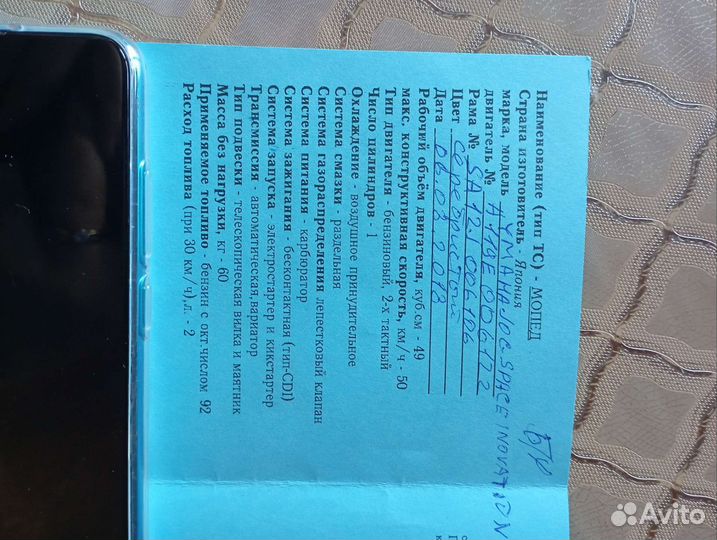 Наименование (тип ТС) - МОПЕД
Страна изготовитель - Япония
марка, модель YMAHA JOC.SPACE INOVATION
двигатель № A119E 006122
Рама № SA12.1 006106
Цвет серебристый
Дата 06.03.2018
Рабочий объём двигателя, куб.см - 49
макс. конструктивная скорость, км/ч - 50
Тип двигателя - бензиновый, 2-х тактный
Число цилиндров - 1
Охлаждение - воздушное принудительное
Система смазки - раздельная
Система газораспределения лепестковый клапан
Система питания - карбюратор
Система зажигания - бесконтактная (тип-CDI)
Система запуска - электростартер и кикстартер
Трансмиссия - автоматическая,вариатор
Тип подвески - телескопическая вилка и маятник
Масса без нагрузки, кг - 60
Применяемое топливо - бензин с окт.числом 92
Расход топлива (при 30 км/ч),л. - 2
Б/У
Avito